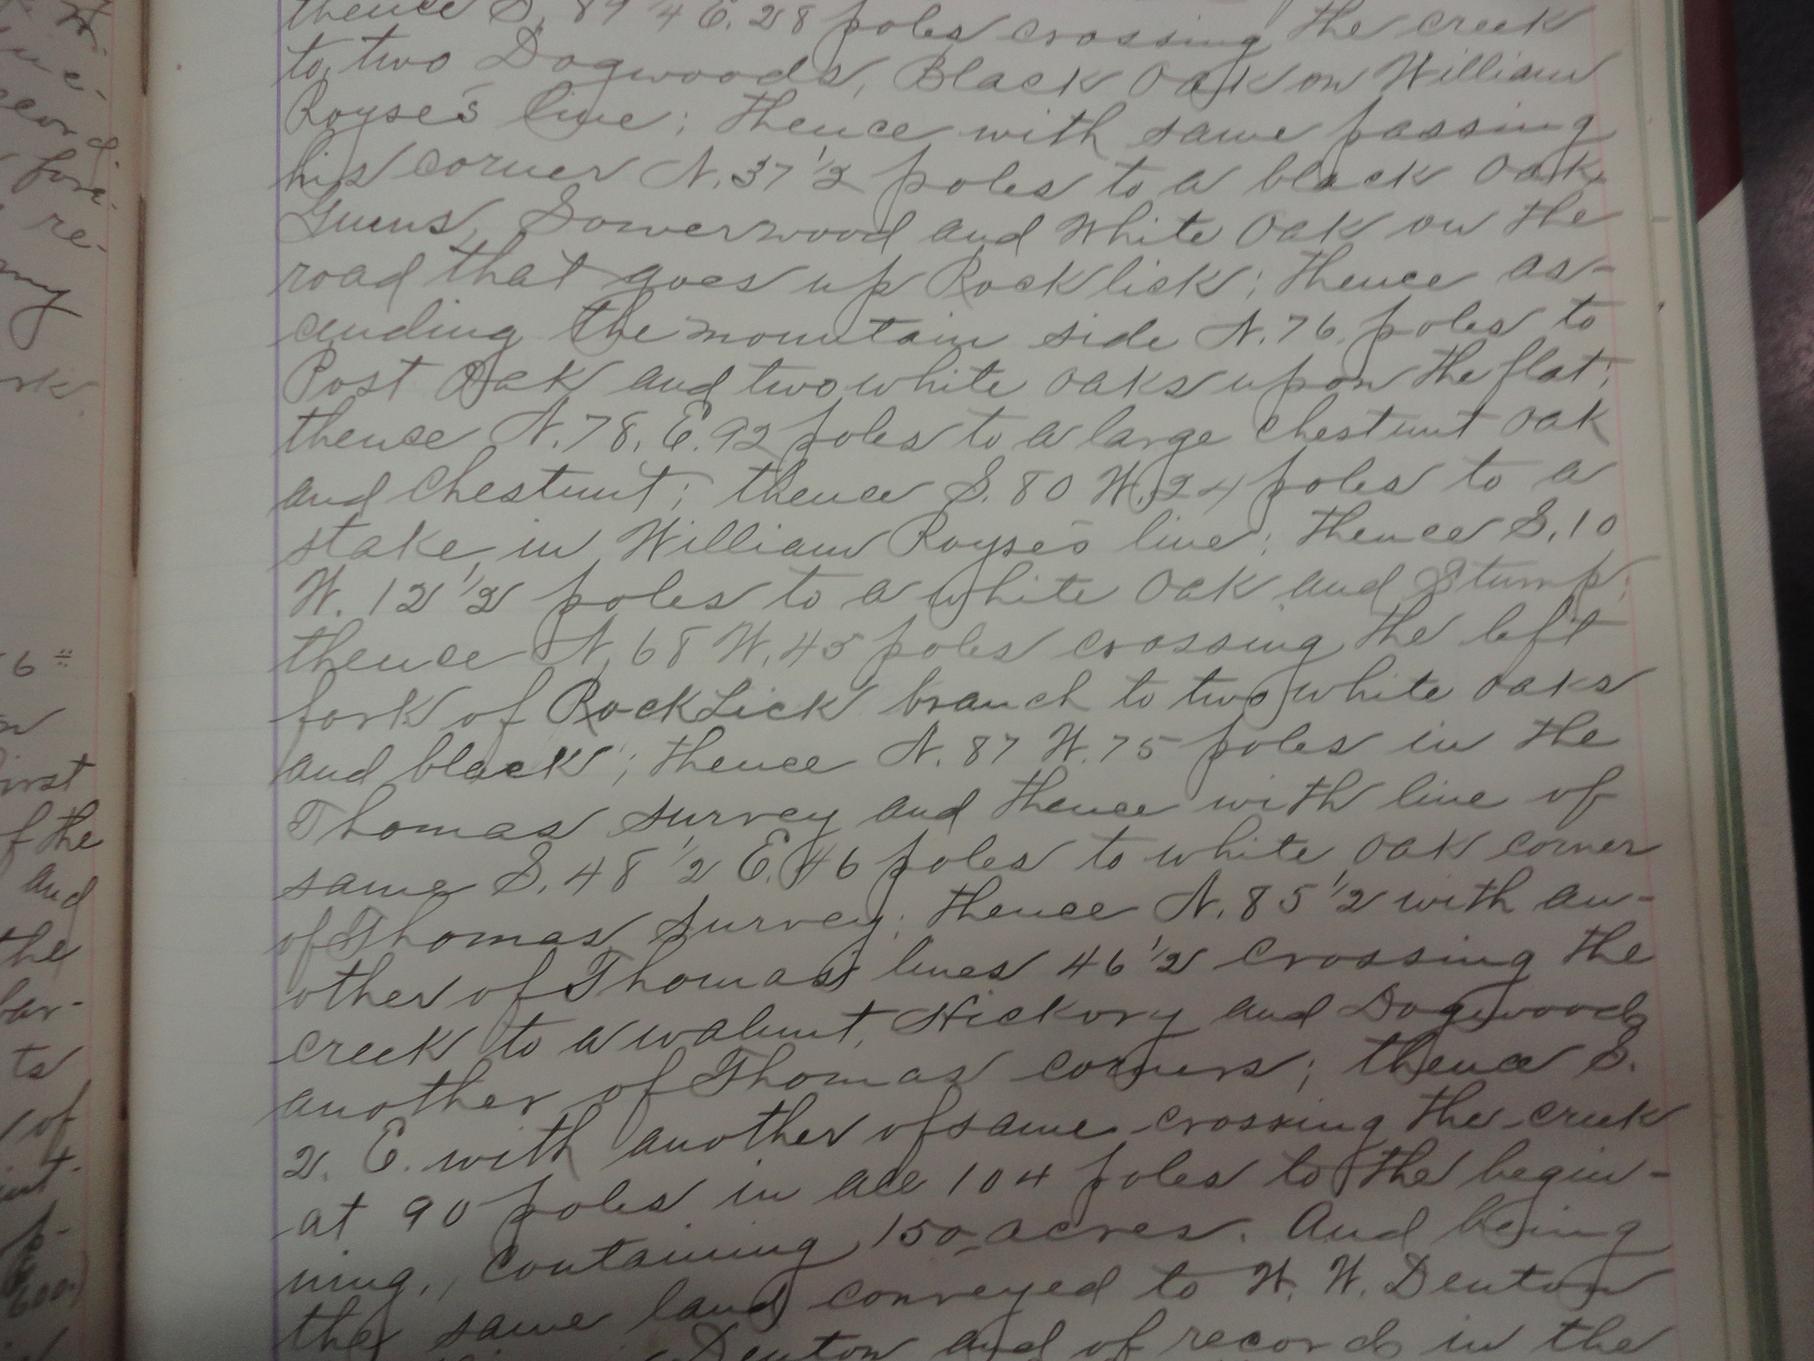 thence S. 89 1/4 E. 28 poles crossing the creek
to two Dogwoods, Black Oak on William
Royse's line; thence with same passing
his corner N. 37 1/2 poles to a black Oak
Gums, Sowerwood and White Oak on the
road that goes up Rocklick; thence as-
cending the mountain side N. 76 poles to
Post Oak and two white oaks upon the flat;
thence N. 78, E. 92 poles to a large chestnut oak
and chestnut; thence S. 80 W. 24 poles to a
stake in William Royse's line; thence S. 10
W. 12 1/2 poles to a white oak and Stump;
thence N. 68 W. 45 poles crossing the left
fork of Rock Lick branch to two white oaks
and black; thence N. 87 W. 75 poles in the
Thomas survey and thence with line of
same S. 48 1/2 E. 46 poles to white oak corner
of Thomas survey; thence N. 85 1/2 with an-
other of Thomas' lines 46 1/2 crossing the
creek to a walnut, Hickory and Dogwood
another of Thomas corners; thence S.
2. E. with another of same crossing the creek
at 90 poles in all 104 poles to the begin-
ning, containing 150 acres. And being
the same land conveyed to W. W. Denton
Denton and of record in the
re-
my
irst
f the
and
the
bar-
ts
of